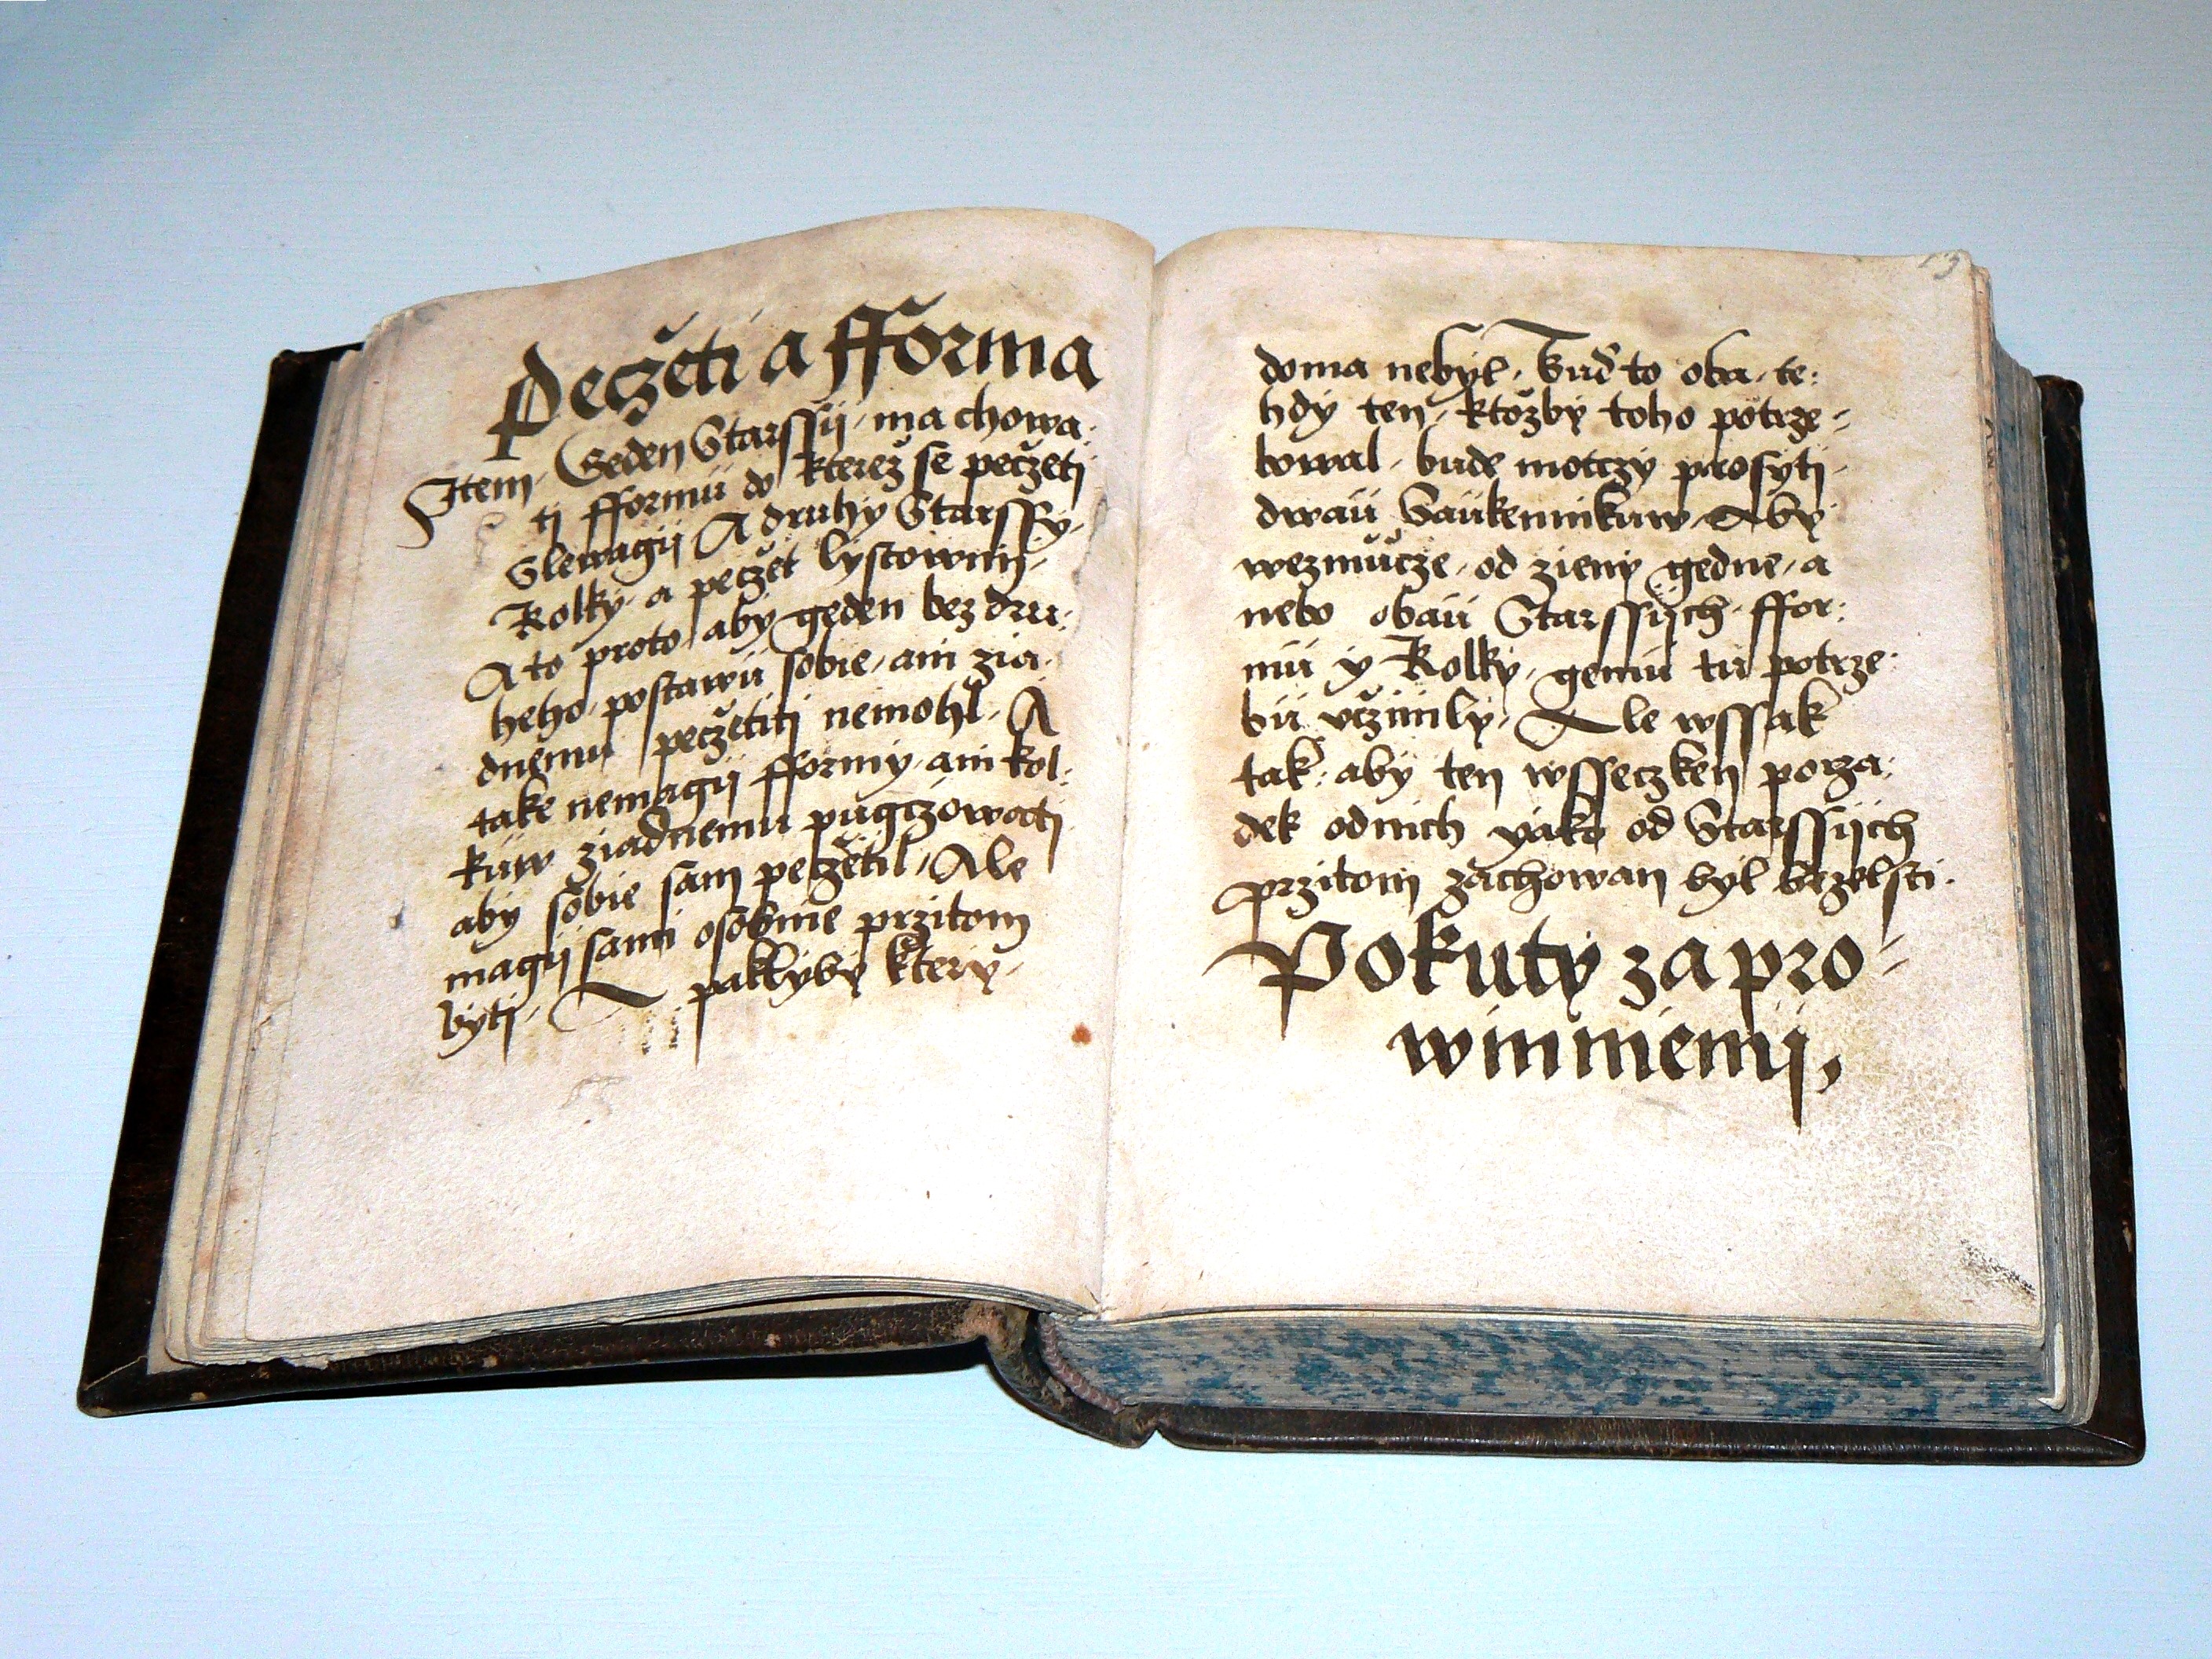 Peczeti a fforma
Item, Geden Starssij, ma chowa:
tj fformu do kterež se peczeti
Slewagij A druhy Starssy,
Kolky, a peczet lystownij,
A to proto aby geden bez dru:
heho, postawu sobie, ani zia:
dnemu peczetiti nemohl, A
take nemagij fformy, ani kol:
kuw ziadnemu pugczowati
aby sobie sam peczetil, Ale
magij sami osobnie przitom
byti, paklyby ktery,
13
doma nebyl, buď to oba, te:
hdy ten, ktožby toho potrze,
bowal, bude motczy prosyti,
dwau Saukennikuw, Aby
wezmucze, od zieny gedne, a
nebo obau Starssijch, ffor:
mu y Kolky, gemu tu potrze:
bu vczinily, Ale wssak
tak: aby ten wsseczken porza:
dek odnich yako od Starssijch
przitom zachowan byl bezelsti.
Pokuty za pro,
winnienij,